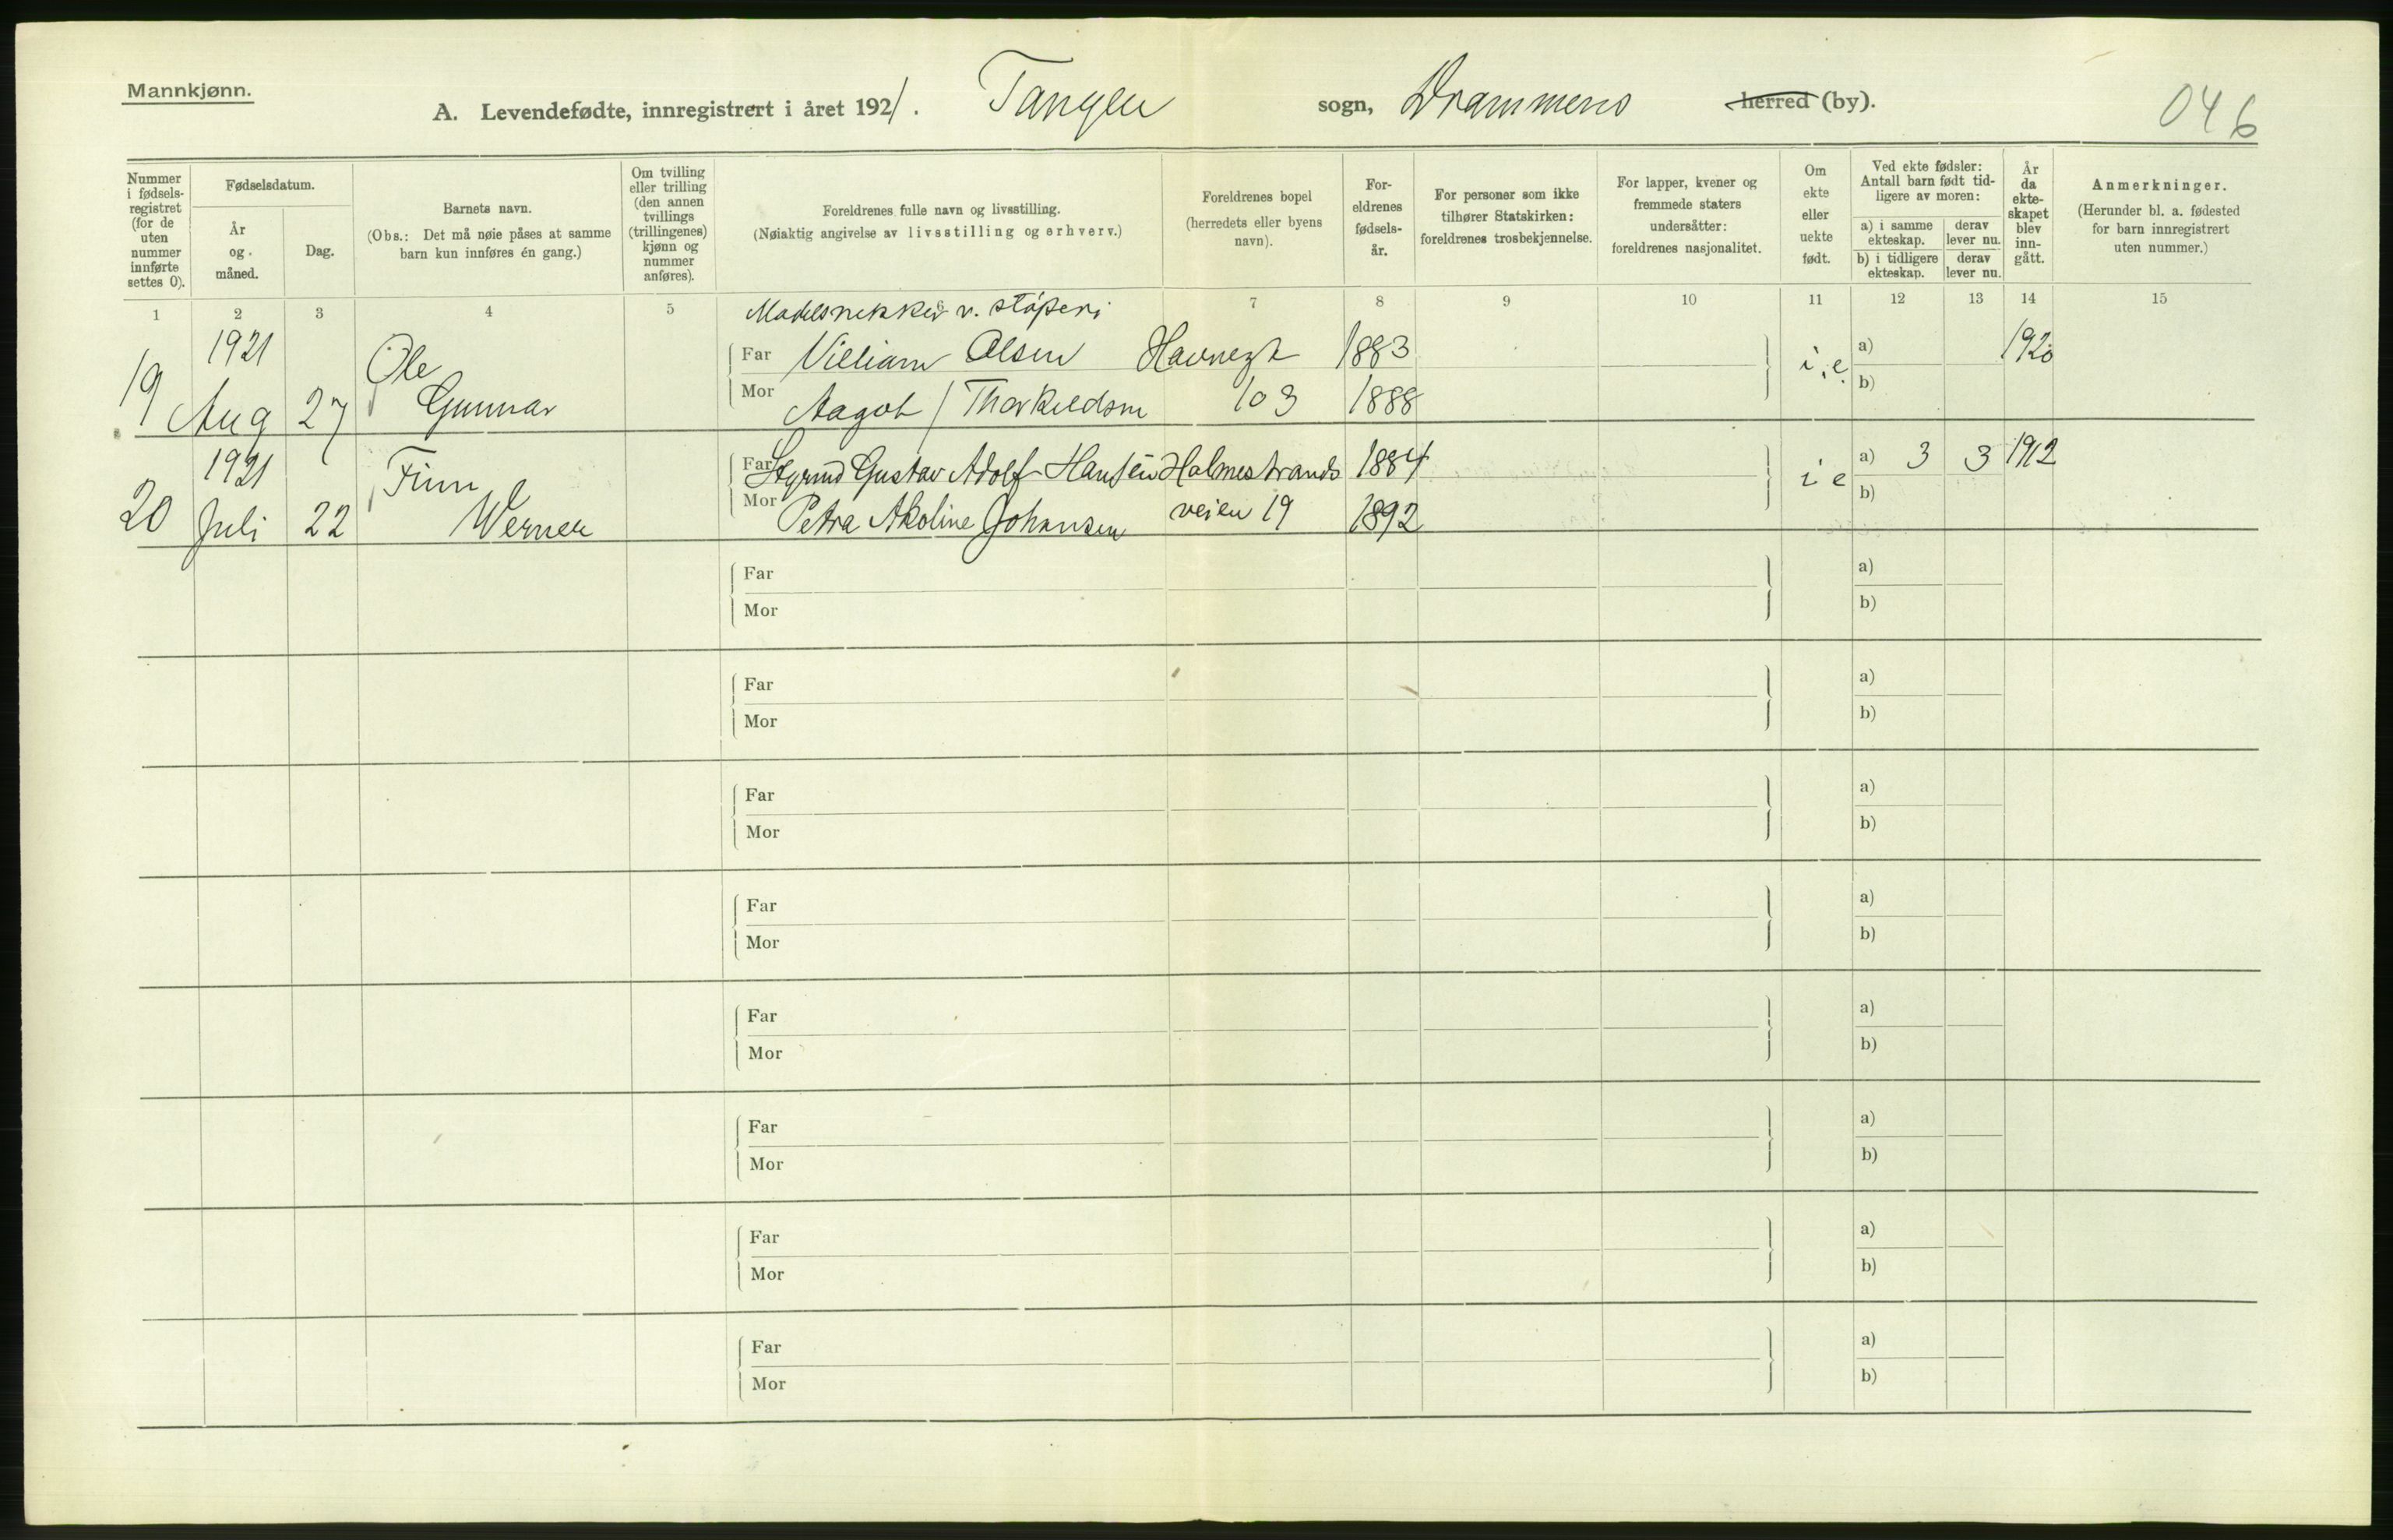 Mannkjønn.
A. Levendefødte, innregistrert i året 1921. Tangen sogn, Drammens herred (by).
046
Nummer i fødselsregistret (for de uten nummer innførte settes 0).
Fødselsdatum.
År og måned.
Dag.
Barnets navn.
(Obs.: Det må nøie påses at samme barn kun innføres én gang.)
Om tvilling eller trilling (den annen tvillings (trillingenes) kjønn og nummer anføres).
Foreldrenes fulle navn og livsstilling.
(Nøiaktig angivelse av livsstilling og erhverv.)
Foreldrenes bopel
(herredets eller byens navn).
Foreldrenes fødselsår.
For personer som ikke tilhører Statskirken: foreldrenes trosbekjennelse.
For lapper, kvener og fremmede staters undersåtter: foreldrenes nasjonalitet.
Om ekte eller uekte født.
Ved ekte fødsler: Antall barn født tidligere av moren:
a) i samme ekteskap.
derav lever nu.
b) i tidligere ekteskap.
derav lever nu.
År da ekteskapet blev inngått.
Anmerkninger.
(Herunder bl. a. fødested for barn innregistrert uten nummer.)
1 2 3 4 5 6 7 8 9 10 11 12 13 14 15
Modelsnekker v. støperi
19 1921 Aug 27 Ole Gunnar
Far Villiam Olsen Havnegt 1883 i.e. a) 1920
Mor Aagot / Thorkildsen 103 1888 b)
20 1921 Juli 22 Finn Werner
Far Gustav Adolf Hansen Holmestrands 1884 i e a) 3 3 1912
Mor Petra Akoline Johansen veien 19 1892 b)
Far a)
Mor b)
Far a)
Mor b)
Far a)
Mor b)
Far a)
Mor b)
Far a)
Mor b)
Far a)
Mor b)
Far a)
Mor b)
Far a)
Mor b)